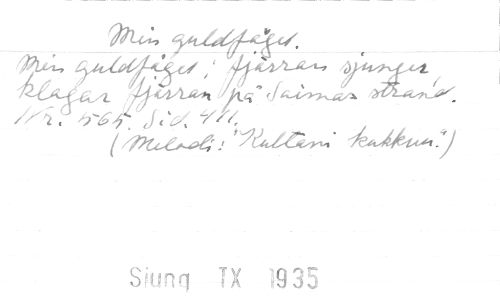 Min guldfågel.
Min guldfågel, fjärran sjunger,
klagar fjärran på Saimas strand.
Nr. 565. Sid. 411.
(Melodi: "Kultani kukkuu".)
Sjung TX 1935